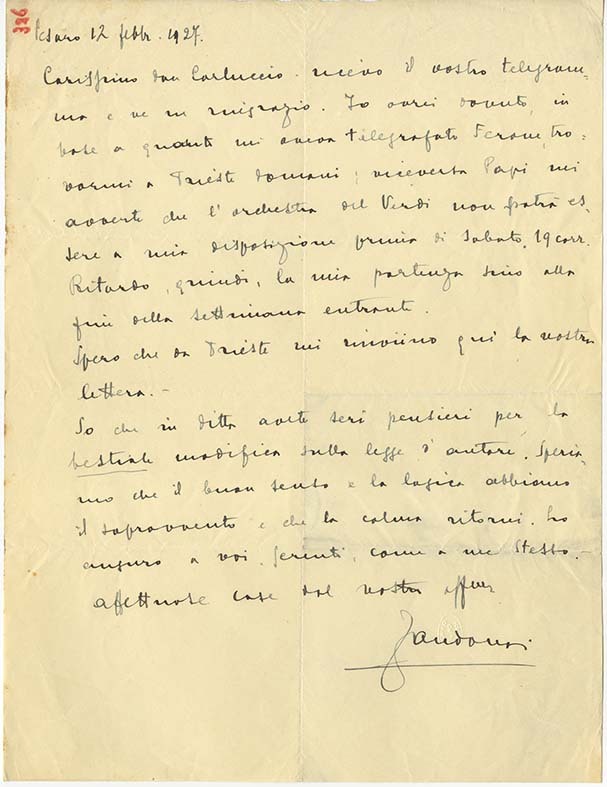 Pesaro 12 febbr. 1927.
Carissimo don Carluccio. ricevo il vostro telegram=
ma e ve ne ringrazio. Io avrei dovuto, in
base a quanto mi aveva telegrafato tro=
varmi a Trieste domani; viceversa Papi mi
avverte che l'orchestra del Verdi non potrà es=
sere a mia disposizione prima di Sabato, 19 corr.
Ritardo, quindi, la mia partenza sino alla
fine della settimana entrante.
Spero che da Trieste mi rinviino qui la vostra
lettera. –
So che in ditta avete seri pensieri per la
bestiale modifica sulla legge d'autore. Speria=
mo che il buon senso e la logica abbiano
il sopravvento e che la calma ritorni. Lo
auguro a voi, Serenti, come a me stesso. –
Affettuose cose dal vostro affmo
Zandonai